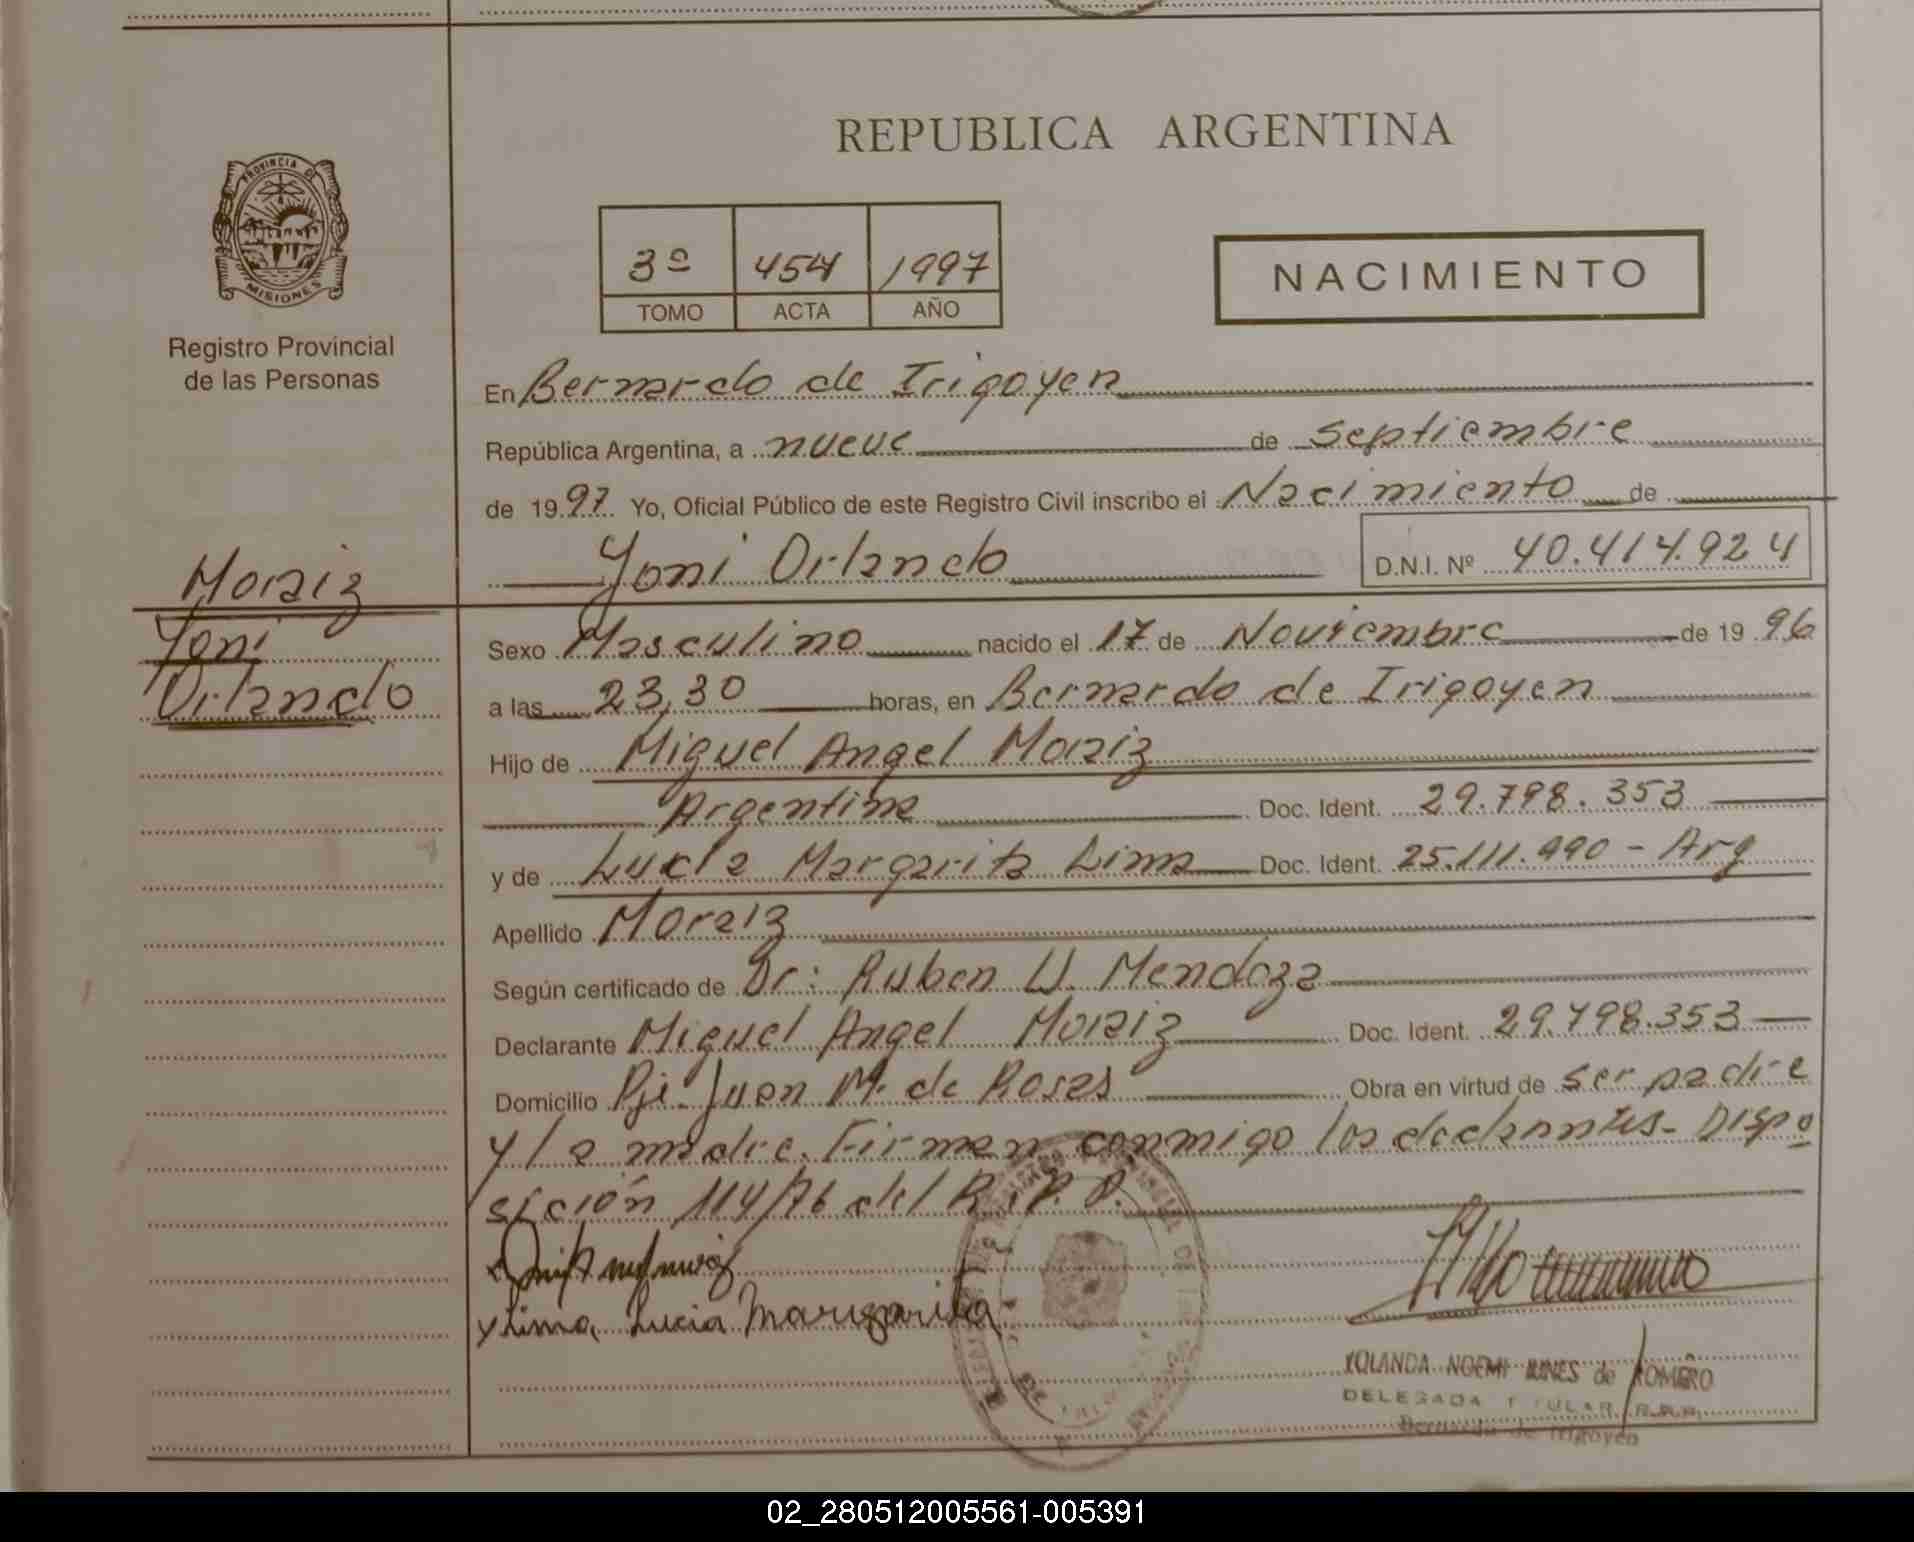 REPUBLICA ARGENTINA
PROVINCIA DE
MISIONES
Registro Provincial
de las Personas
3º 454 1997
TOMO ACTA AÑO
NACIMIENTO
En Bernardo de Irigoyen
República Argentina, a nueve de Septiembre
de 1997. Yo, Oficial Público de este Registro Civil inscribo el Nacimiento de
Yoni Orlando D.N.I. Nº 40.414.924
Moraiz
Yoni
Orlando
Sexo Masculino nacido el 17 de Noviembre de 1996
a las 23,30 horas, en Bernardo de Irigoyen
Hijo de Miguel Angel Moraiz
Argentina Doc. Ident. 29.798.353
y de Lucia Margarita Lima Doc. Ident. 25.111.990 - Arg
Apellido Moraiz
Según certificado de Dr: Ruben W. Mendoza
Declarante Miguel Angel Moraiz Doc. Ident. 29.798.353
Domicilio Pje. Juan M. de Rosas Obra en virtud de ser padre
y la madre. Firman conmigo los declarantes - Dispo
sición 114/76 del R.P.P.
Lima Lucia Margarita
YOLANDA NOEMI NUNES de ROMERO
DELEGADA TITULAR R.P.P.
Bernardo de Irigoyen
02_280512005561-005391